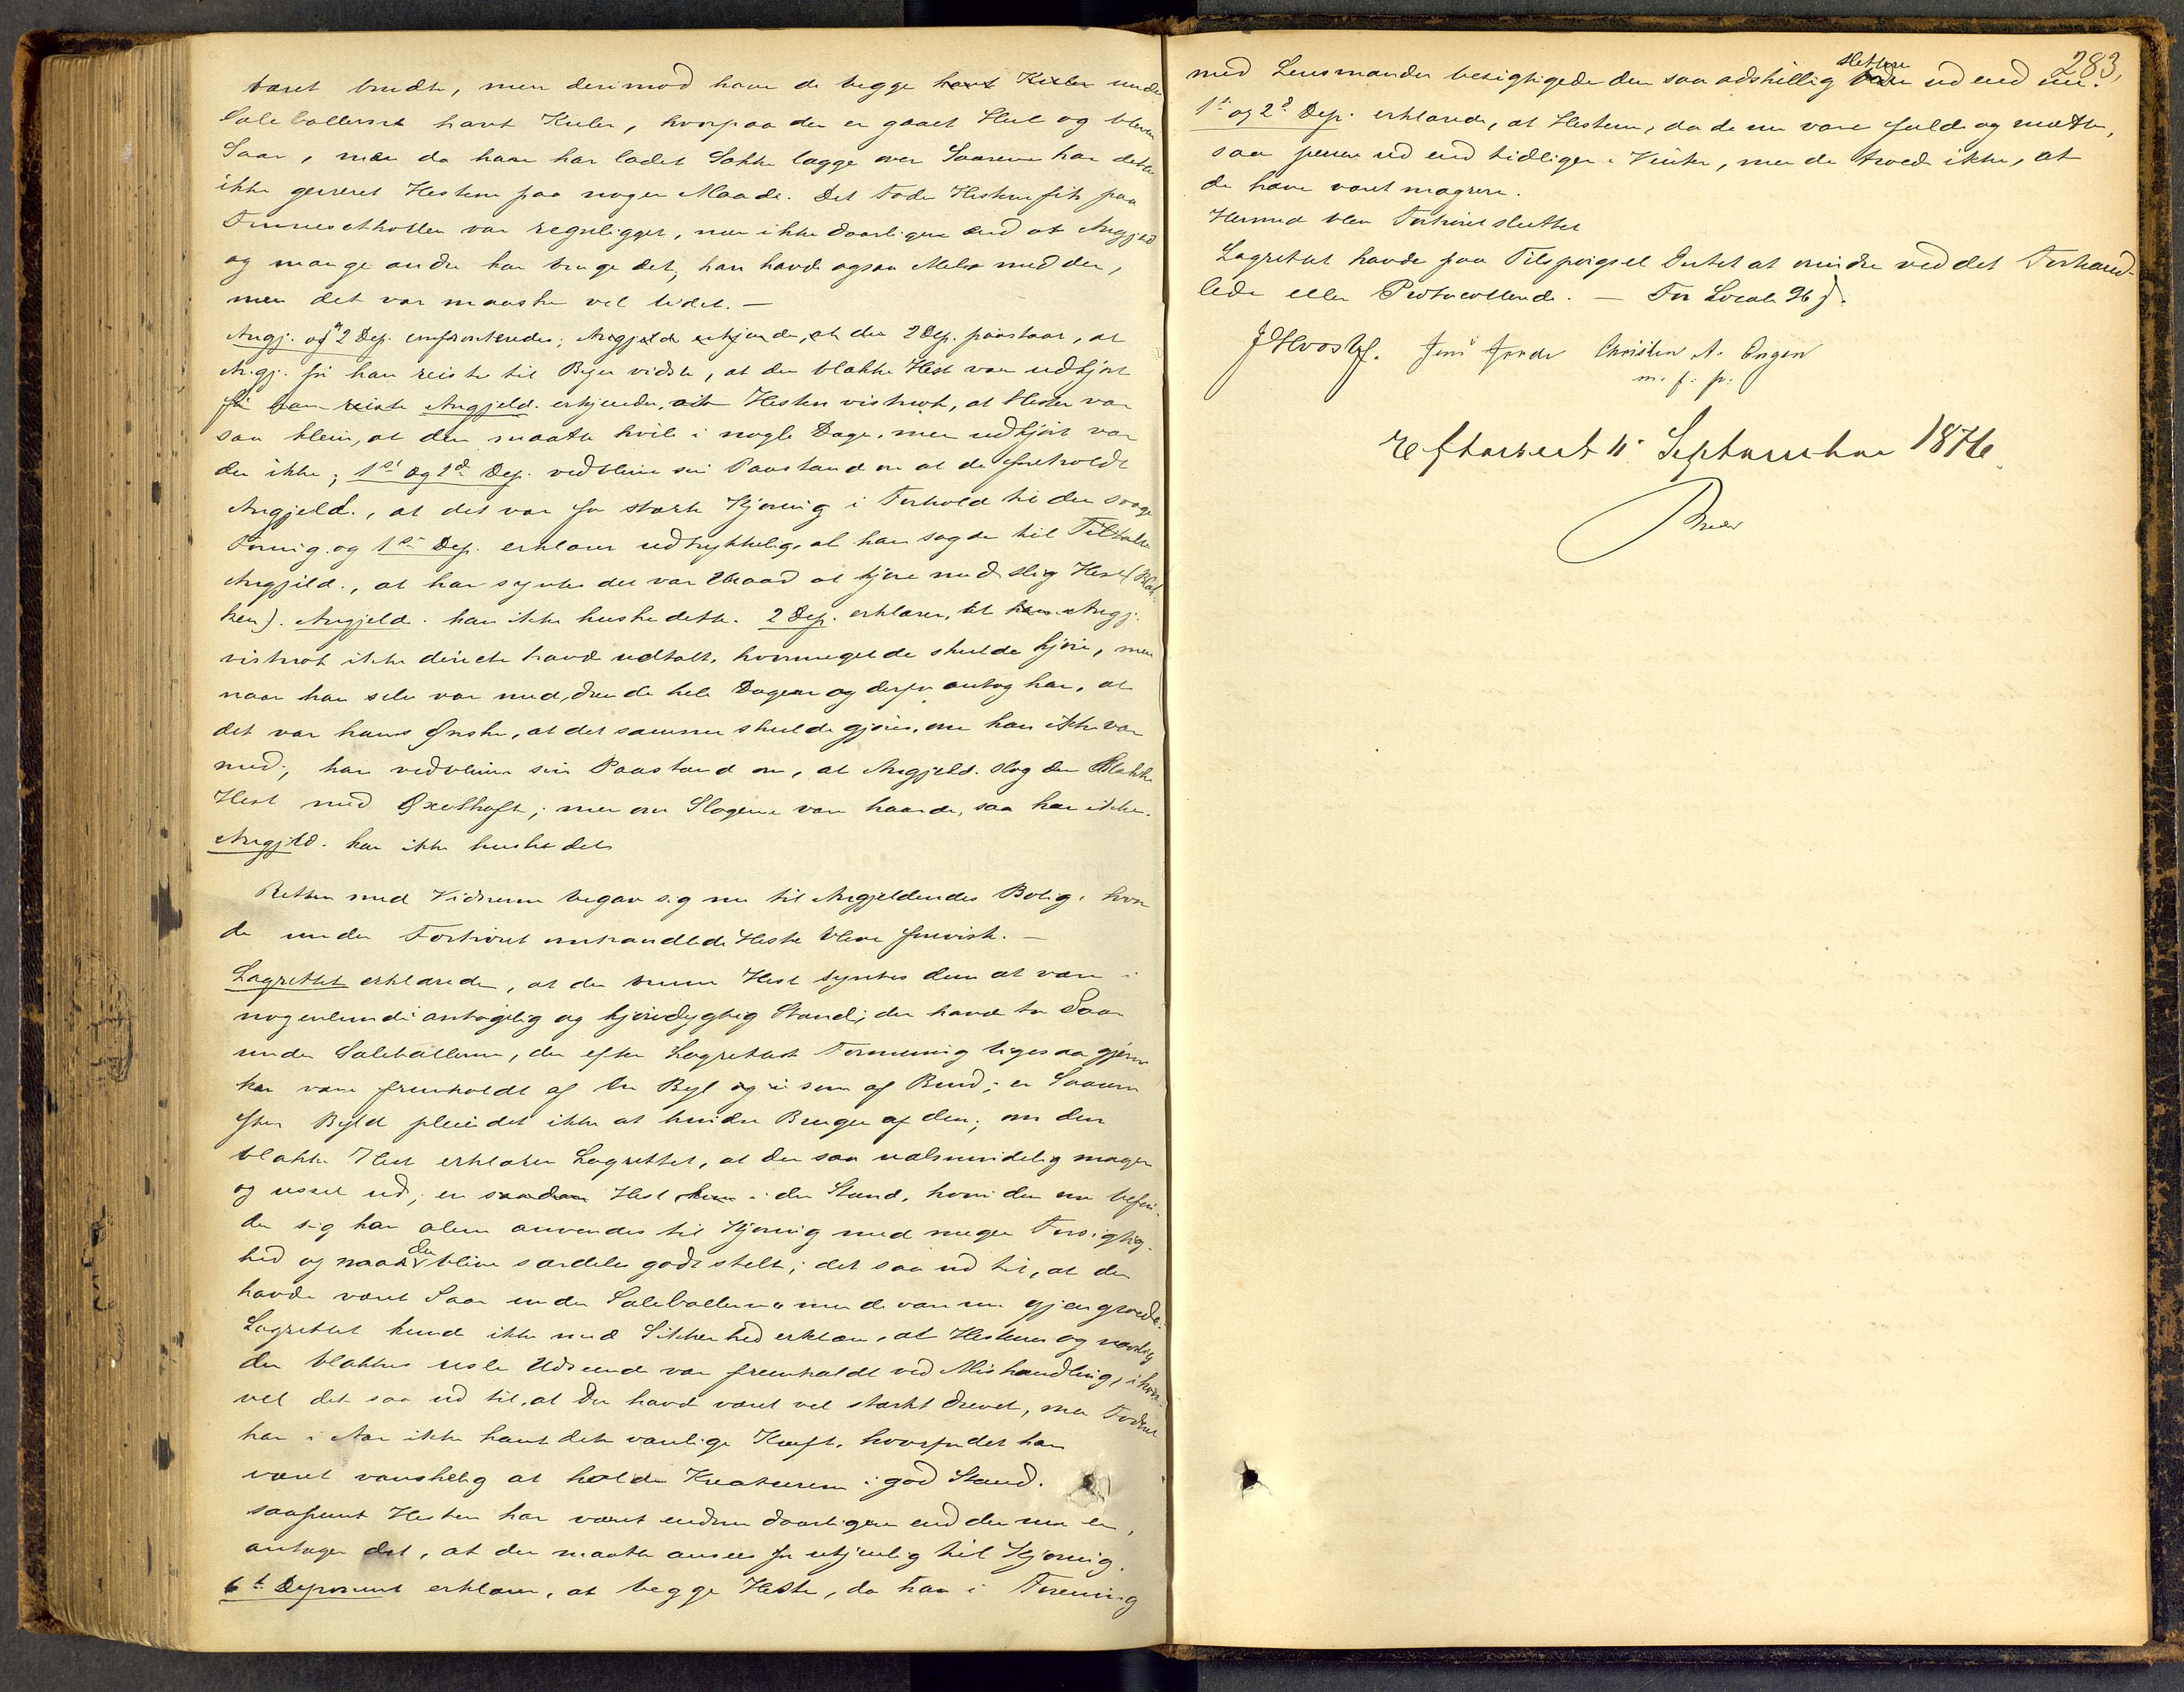 været brudte, men derimod have de begge havt Kuler under
Saleballerne havt Kuler, hvorpaa der er gaaet Hul og bleven
Saar, men da han har ladet Sække lægge over Saarene har dette
ikke generet Hestene paa nogen Maade. Det Foder Hestene fik paa
var regnligget, men ikke daarligere end at Angjeld
og mange andre har bruge det, han havde ogsaa Melis med der,
men det var maaske vel lidet. —
Angj. og 2 Dep. confronteredes; Angjeld. erkjender, at den 2 Dep. paastaar, at
Angj. før han reiste til Byen vidste, at den blakke Hest var udkjørt
før han reiste Angjeld. erkjender, at Hesten vistnok, at Hesten var
saa klein, at den maatte hvile i nogle Dage, men udkjørt var
den ikke; 1ste og 2d Dep. vedbleve sin Paastand om at de foreholdt
Angjeld., at det var for stærk Kjøring i Forhold til den svage
Foring og 1ste Dep. erklærer udtrykkelig, at han sagde til Tiltalte
Angjeld., at han syntes det var Uraad at kjøre med slig Hest (Blak-
ken). Angjeld. kan ikke huske dette. 2 Dep. erklærer, at han Angj.
vistnok ikke directe havde udtalt, hvormeget de skulde kjøre, men
naar han selv var med, drev de hele Dagen og derfor antog han, at
det var hans Ønske, at det samme skulde gjøres, om han ikke var
med; han vedbliver sin Paastand om, at Angjeld. slog den Blakke
Hest med Øxeskaft; men om Slagene vare haarde, saa han ikke.
Angjeld. kan ikke huske det
Retten med Vidnerne begav sig nu til Angjeldendes Bolig, hvor
de under Forhøret omhandlede Heste bleve forevist. —
Lagrettet erklærede, at den brune Hest syntes dem at være i
nogenlunde antagelig og kjøredygtig Stand; den havde to Saar
under Saleballerne, der efter Lagrettets Formening ligesaa gjerne
kan være fremholdt af en Byl og i som af Brud; en Saaren
efter Byld pleier det ikke at hindre Brugen af den; om den
blakke Hest erklærer Lagrettet, at den saa ualmindelig mager
og ussel ud; en saadan Hest kun i den Stand, hvori den nu befin-
der sig kan alene anvendes til Kjøring med megen Forsigtig-
hed og maa den blive særdeles godt stelt; det saa ud til, at den
havde været Saar under Saleballerne men de vare nu gjengroede.
Lagrettet kunde ikke med Sikkerhed erklære, at Hestenes og navnlig
den blakkes usle Udseende var fremkaldt ved Mishandling, ihvor-
vel det saa ud til, at den havde været vel stærkt drevet, men Foderet
har i Aar ikke havt den vanlige Kraft, hvorfor det har
været vanskelig at holde Kreaturene i god Stand.
saafremt Hesten har været endnu daarligere end den nu er,
antages det, at den maatte ansees for utjenlig til Kjøring.
6te Deponent erklærer, at begge Heste, da han i Forening
283,
med Lensmanden besigtigede dem saa adskillig slettere ud end nu.
1ste og 2d Dep. erklærede, at Hestene, da de nu vare fulde og mætte,
saa penere ud end tidligere i Vinter, men de troede ikke, at
de have været magrere.
Hermed blev Forhøret sluttet
Lagrettet havde paa Tilspørgsel Intet at erindre ved det Forhand-
lede eller Protocollerede. — For Locale 96 ß.
Jens Christen A. Engen
m. f. p.
Efterseet 11 September 1876